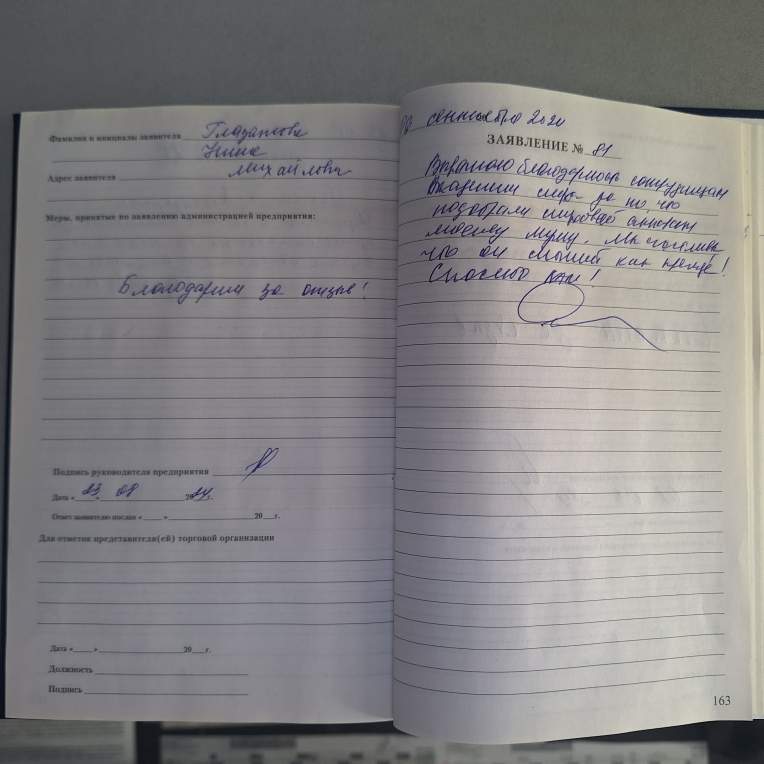 Фамилия и инициалы заявителя
Нина
Михайловна
Адрес заявителя
Меры, принятые по заявлению администрацией предприятия:
Благодарим за отзыв!
Подпись руководителя предприятия
Дата « 23 » 09 20 г.
Ответ заявителю послан « » 20 г.
Для отметок представителя(ей) торговой организации
Дата « » 20 г.
Должность
Подпись
сентября
ЗАЯВЛЕНИЕ № 81
Выражаю благодарность
за то, что
подобрали аппарат
моему мужу.
что он как прежде!
Спасибо Вам!
163